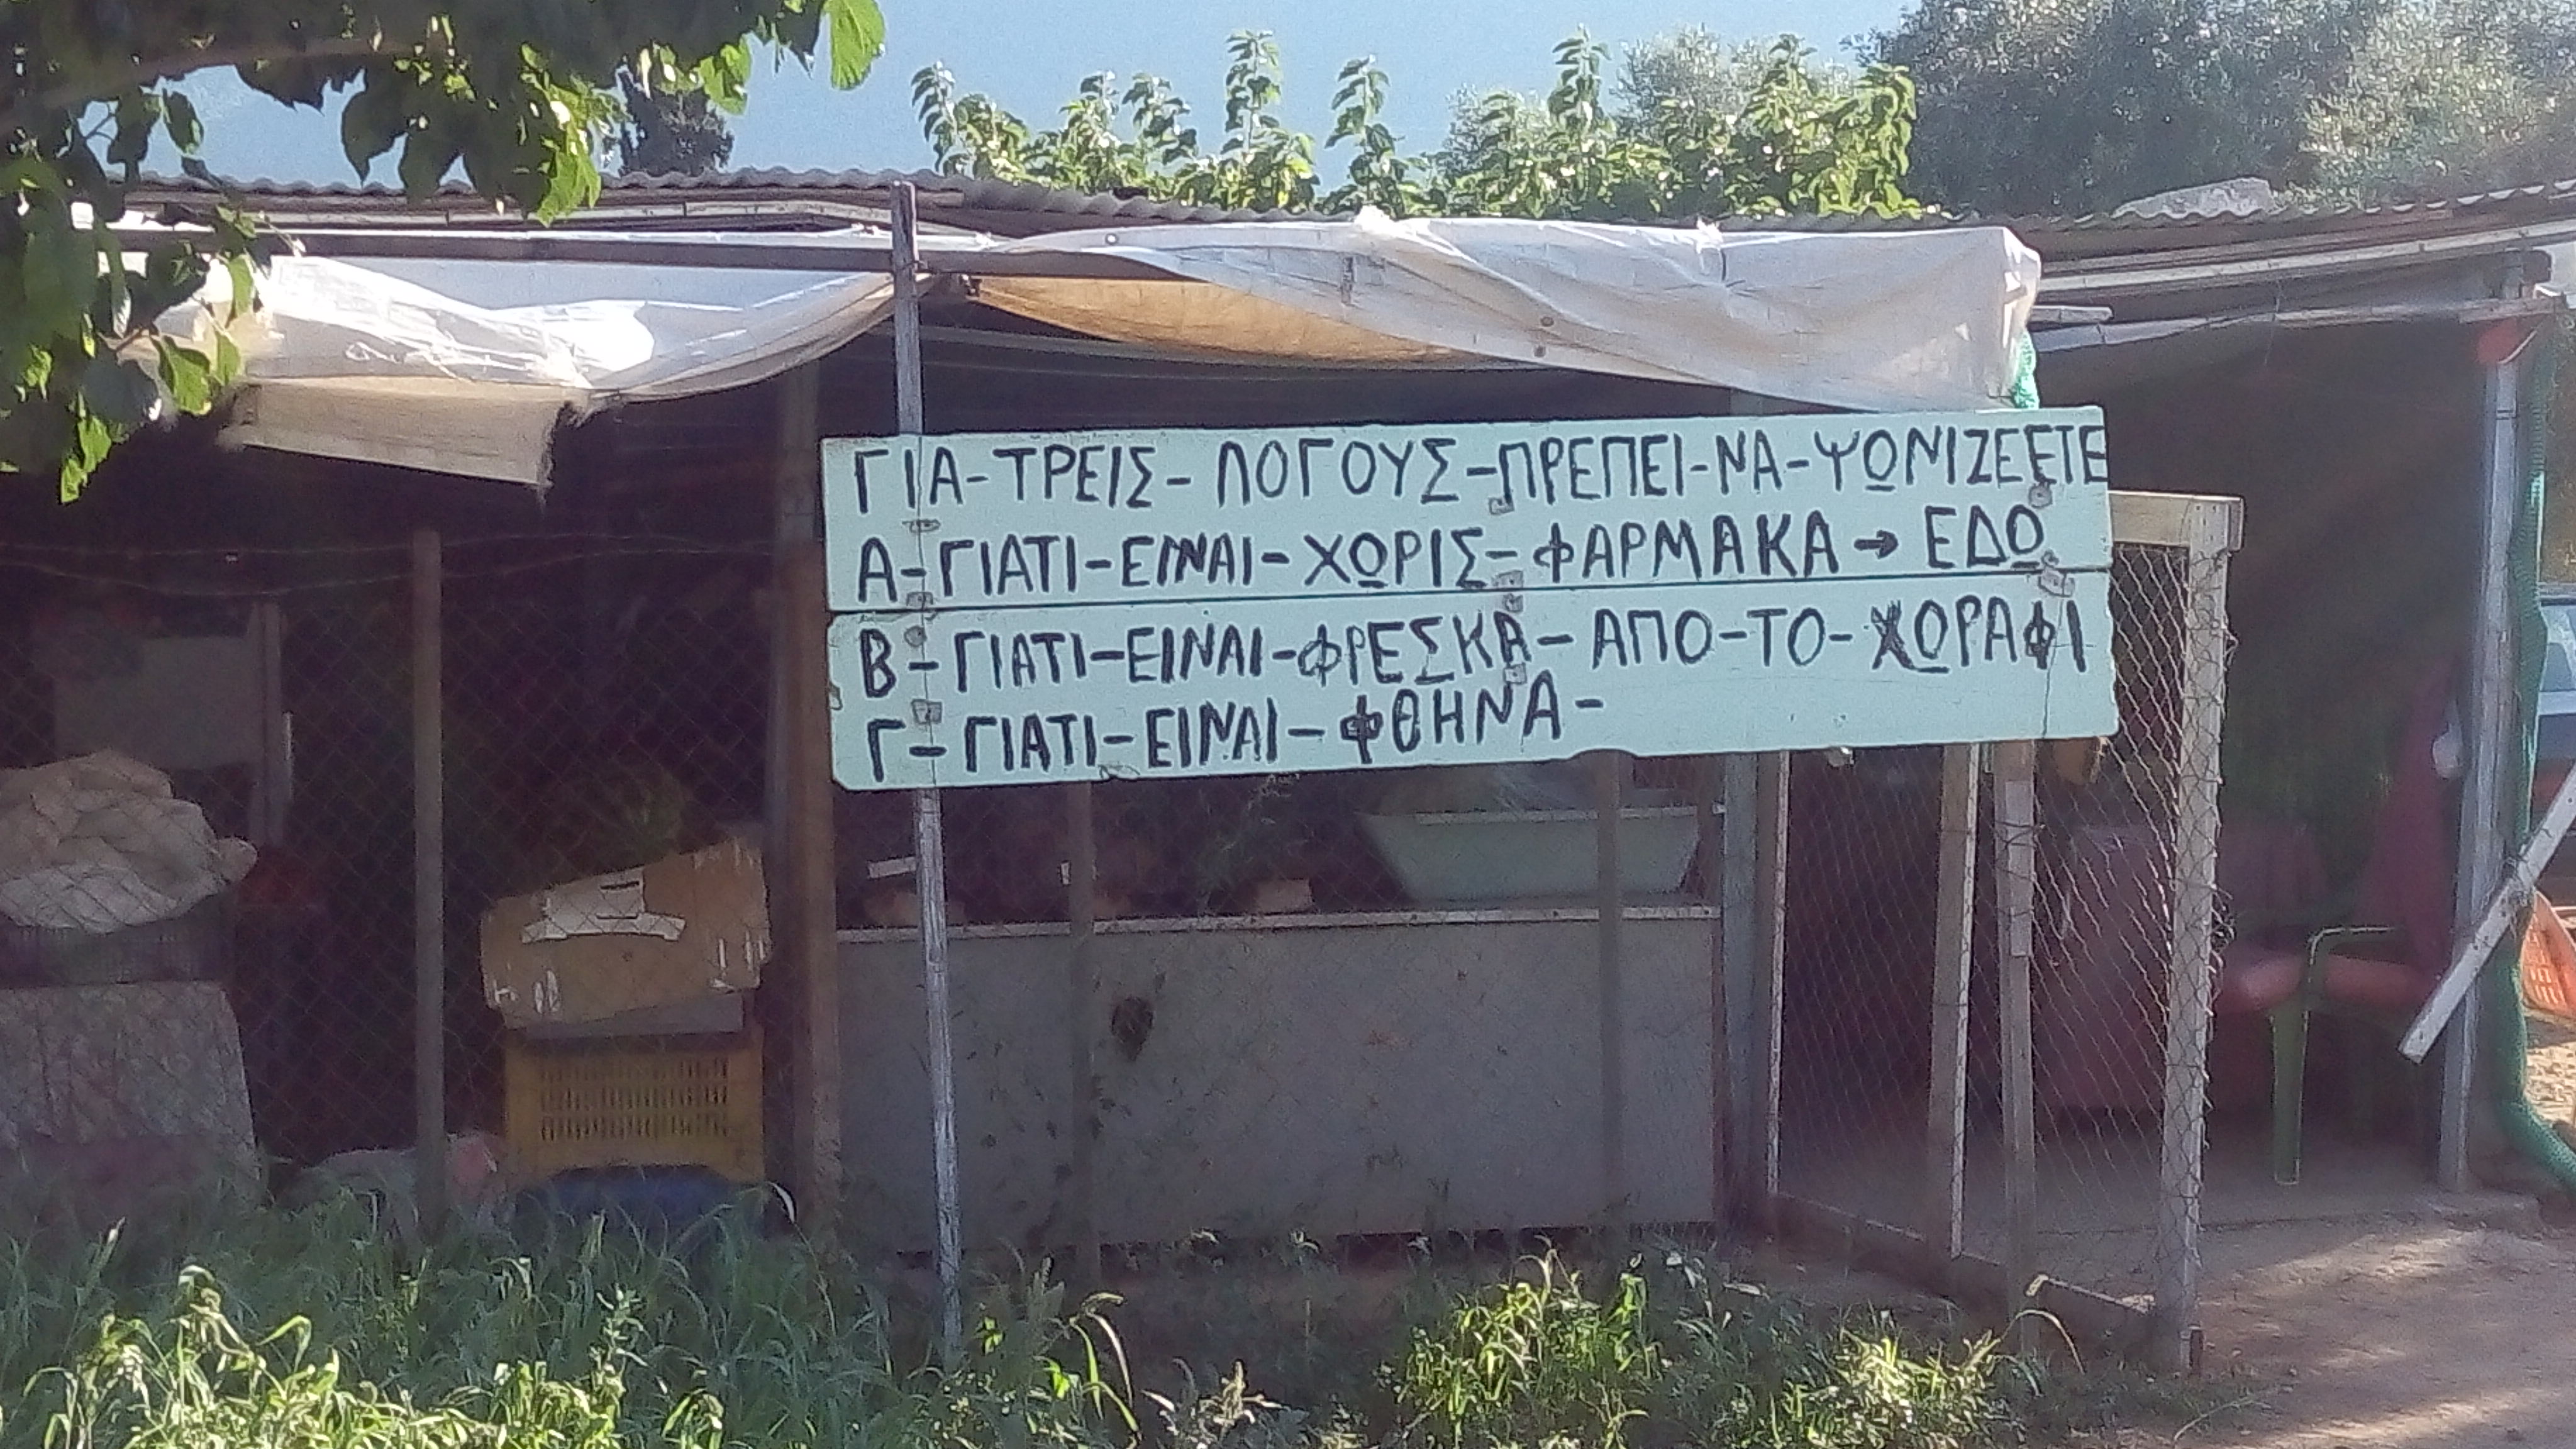 ΓΙΑ-ΤΡΕΙΣ-ΛΟΓΟΥΣ-ΠΡΕΠΕΙ-ΝΑ-ΨΩΝΙΖΕΕΤΕ
Α-ΓΙΑΤΙ-ΕΙΝΑΙ-ΧΩΡΙΣ-ΦΑΡΜΑΚΑ→ΕΔΩ
Β-ΓΙΑΤΙ-ΕΙΝΑΙ-ΦΡΕΣΚΑ-ΑΠΟ-ΤΟ-ΧΩΡΑΦΙ
Γ-ΓΙΑΤΙ-ΕΙΝΑΙ-ΦΘΗΝΑ-